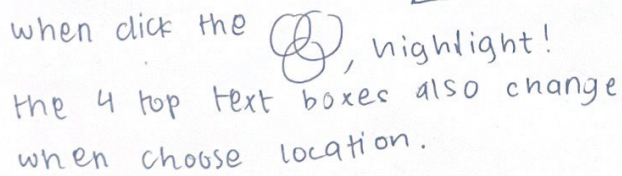 when click the , highlight!
the 4 top text boxes also change
when choose location.